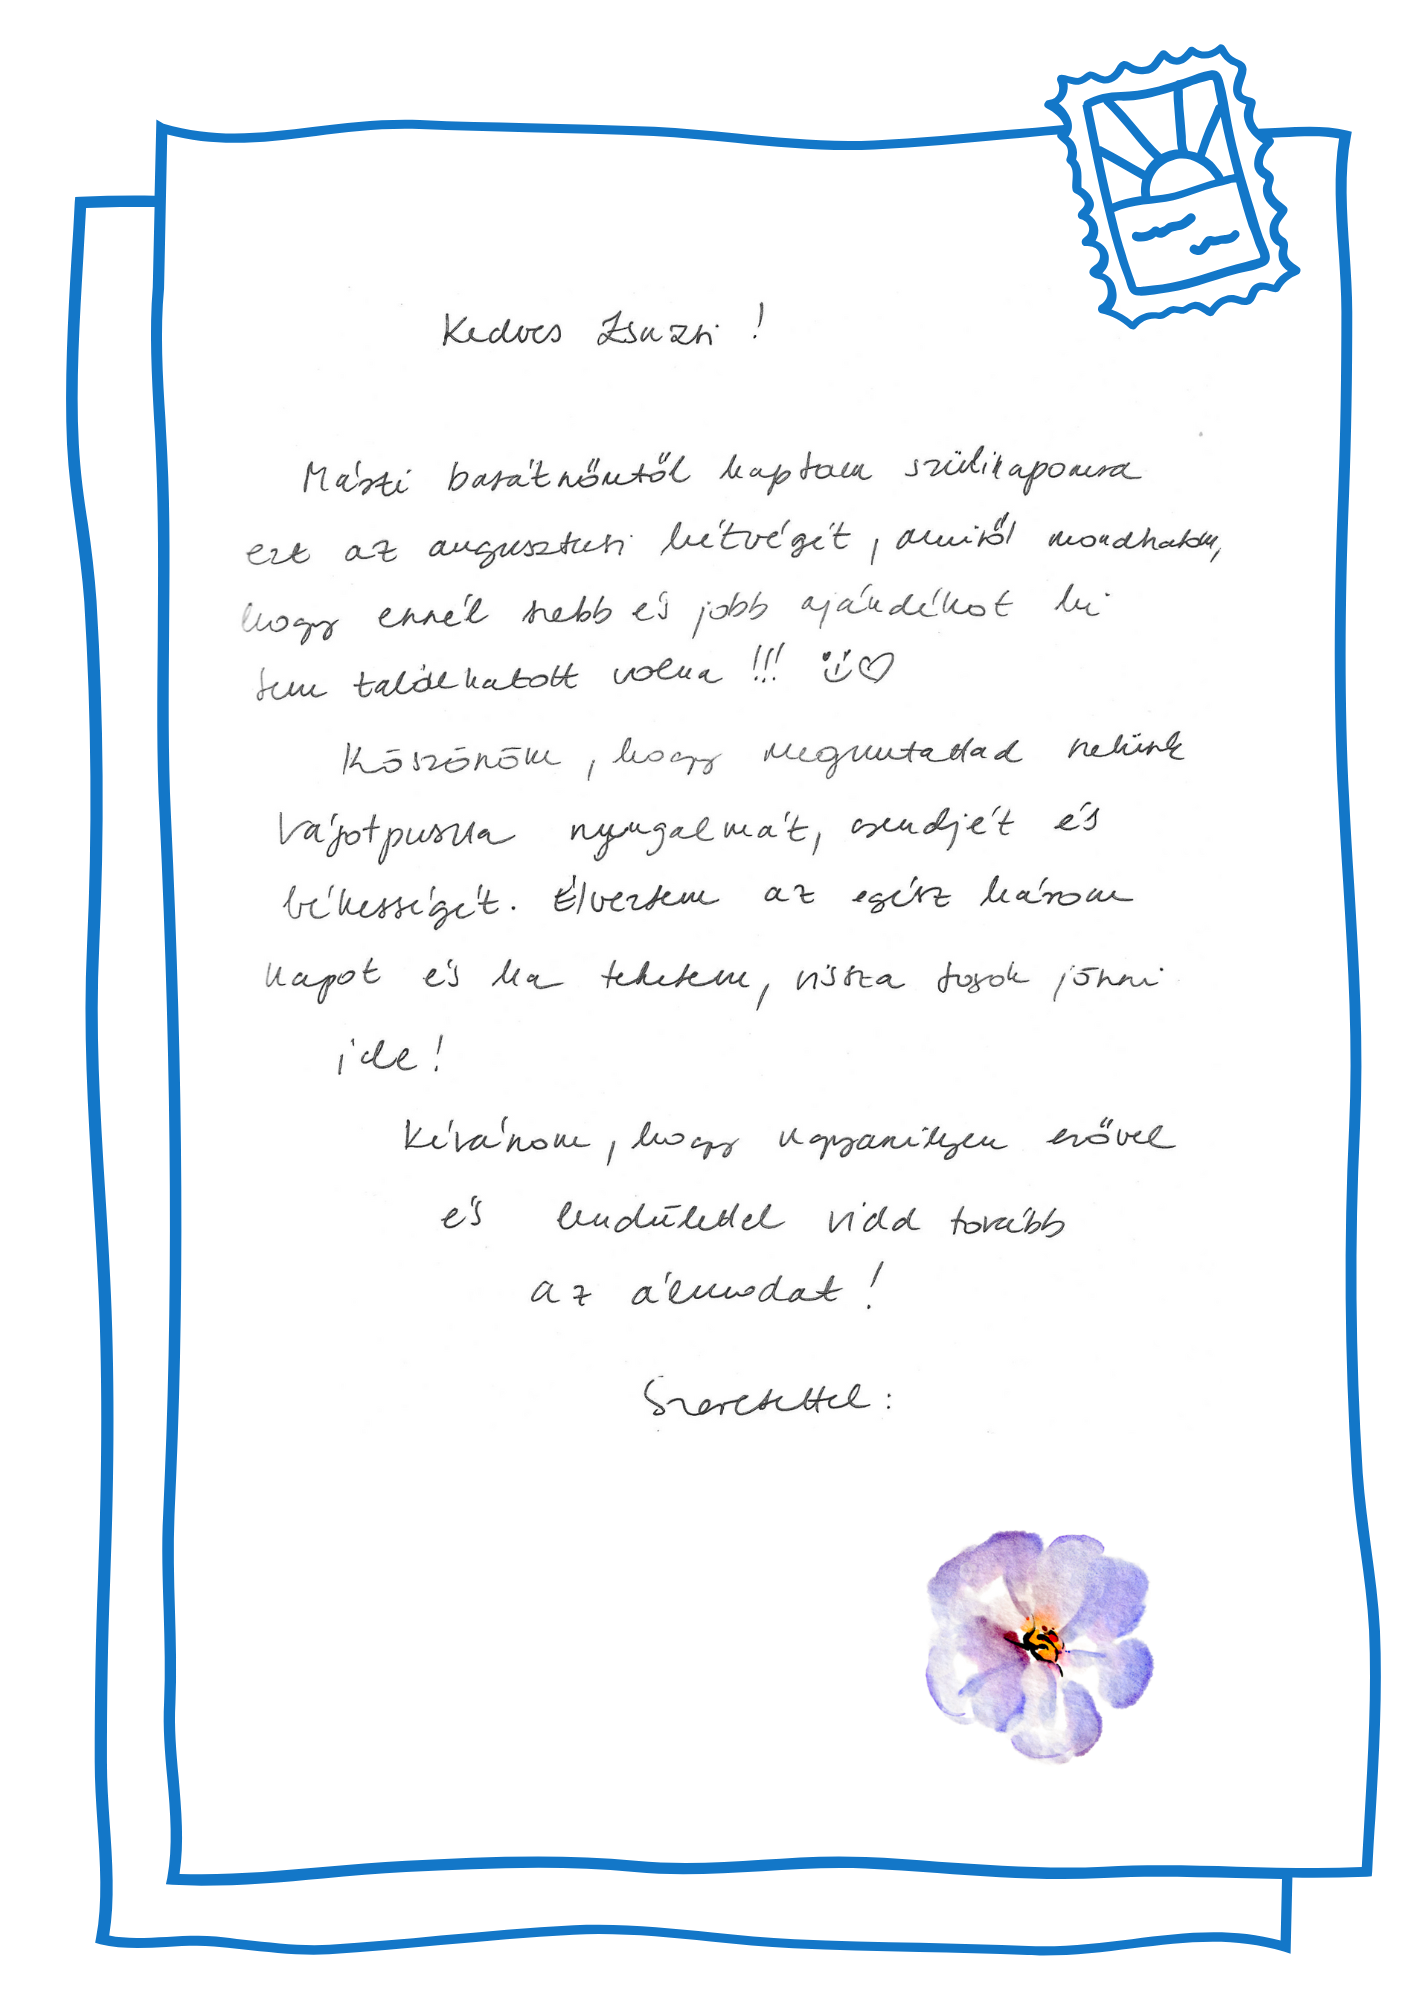 Kedves Zsuzsi!
Márti barátnőmtől kaptam szülinapomra
ezt az augusztusi hétvégét, amiről mondhatom,
hogy ennél szebb és jobb ajándékot ki
sem találhatott volna!!! :) ♡
Köszönöm, hogy megmutattad nekünk
nyugalmát, csendjét és
békességét. Élveztem az egész három
napot és ha tehetem, vissza fogok jönni
ide!
Kívánom, hogy ugyanilyen erővel
és lendülettel vidd tovább
az álmodat!
Szeretettel: